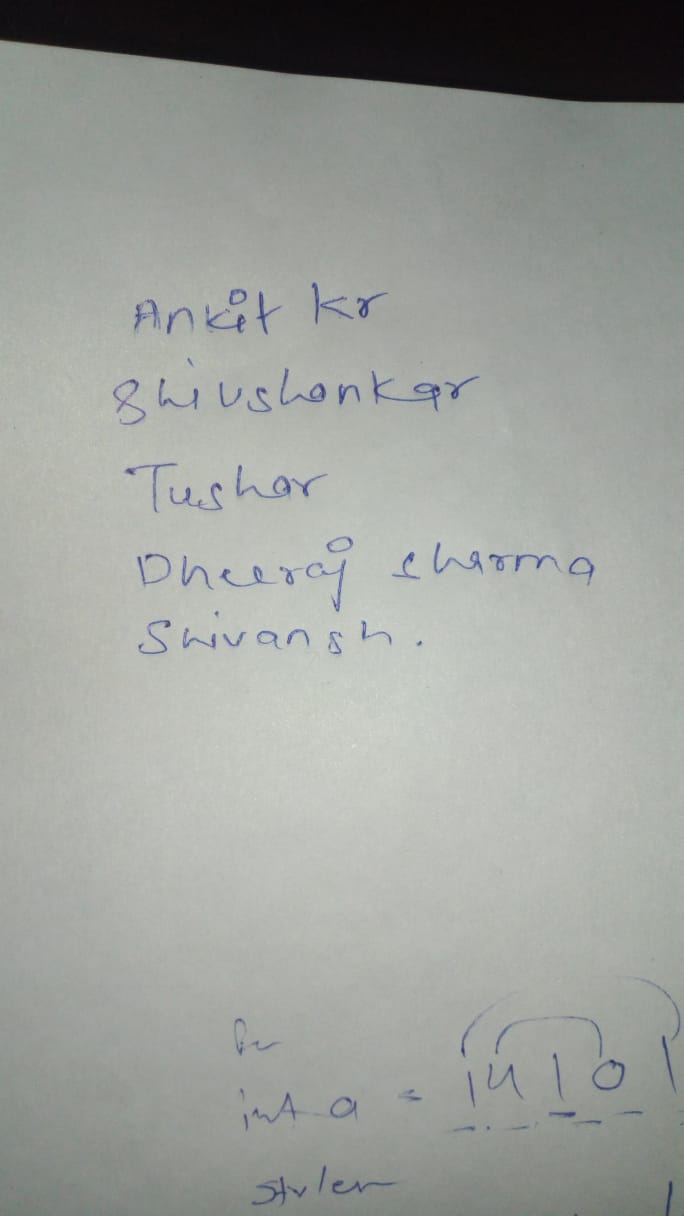 Ankit Kr
Shivshankar
Tushar
Dheeraj sharma
Shivansh.
int a = 14101
strlen